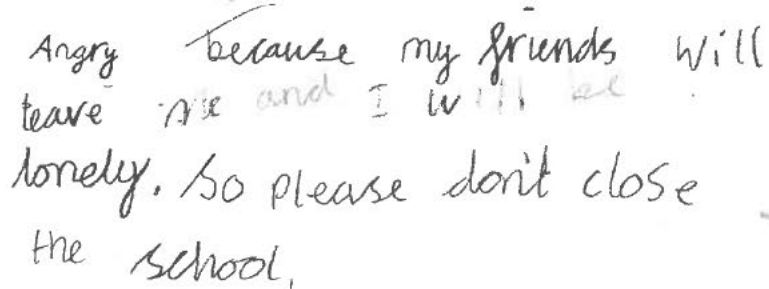 Angry because my friends will
leave me and I will be
lonely. So please don't close
the school.